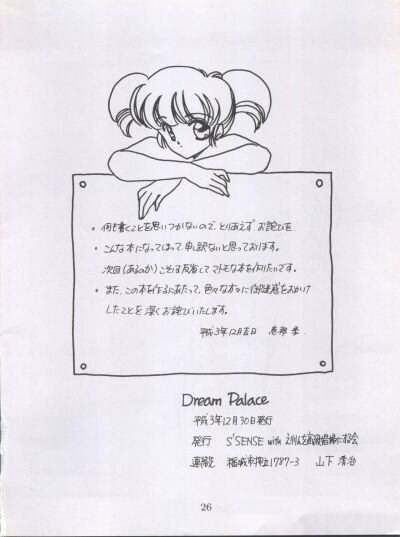 ・何も書くことを思いつかないので、とりあえず お詫びを.
・こんな本になってしまって、申し訳ないと思っております。
次回(あるのか)こそは反省してマトモな本を作りたいです。
・また、この本を作るにあたって、色々な方々に御迷惑をおかけ
したことを 深くお詫びいたします。
平成3年12月吉日
Dream Palace
平成3年12月30日発行
発行 S'SENSE with えりりんを高級娼婦にする会
連絡 稲城市押立1787-3 山下 清治
26